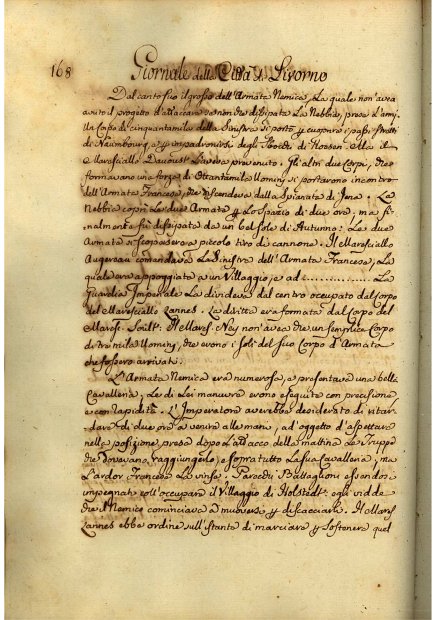 168 Giornale della Città di Livorno
Dal canto suo il grosso dell'Armata Nemica, La quale non avea
avuto il progetto d'attaccare se non dissipata La Nebbia, prese l'armi
Un Corpo di cinquantamila della Sinistra si portò p cuoprire i passi stretti
di Naumbourg, e p impadronirsi degli Sbocchi di Koesen. Ma il
Maresciallo Davoust L'aveva prevenuto. Gli altri due Corpi, che
formavano una forza di Ottantamila Uomini si portarono incontro
dell'Armata Francese, che discendeva dalla Spianata di Jena. La
Nebbia coprì Le due Armate p Lo spazio di due ore, ma fi-
nalmente fù dissipata da un bel sole di Autunno: Le due
Armate si scopersero a piccolo tiro di cannone. Il Maresciallo
Augerau comandava La Sinistra dell'Armata Francese, La
quale era appoggiata a un Villaggio, e ad .............. La
Guardia Imperiale La divideva dal centro occupato dal corpo
del Maresciallo Lannes. La diritta era formata dal Corpo del
Maresc. Soult. Il Maresc. Ney non avea che un semplice Corpo
di tre mila Uomini, che erono i soli del suo Corpo d'Armata
che fossero arrivati.
L'Armata Nemica era numerosa, e presentava una bella
Cavalleria; Le di Lei manuvre erono eseguite con precisione
e con rapidità. L'Imperatore averebbe desiderato di ritar-
dare di due ore a venire alle mani, ad'oggetto d'aspettare
nella posizione presa dopo L'attacco della mattina Le Truppe
che dovevano raggiungerlo, e sopra tutto La sua Cavalleria, ma
L'ardor Francese La vinse. Parecchi Battaglioni essendosi
impegnati coll'occupare il Villaggio di Holstedt. egli vidde
che il Nemico cominciava a muoversi p discacciarli. Il Maresc.
Lannes ebbe ordine sull'istante di marciare p sostenere quel